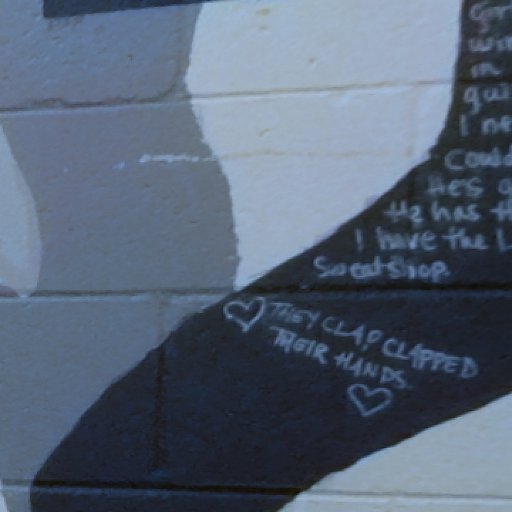 in
I
could
He's
He has
I have the L
Sweatshop.
THEY CLAP, CLAPPED
THEIR HANDS